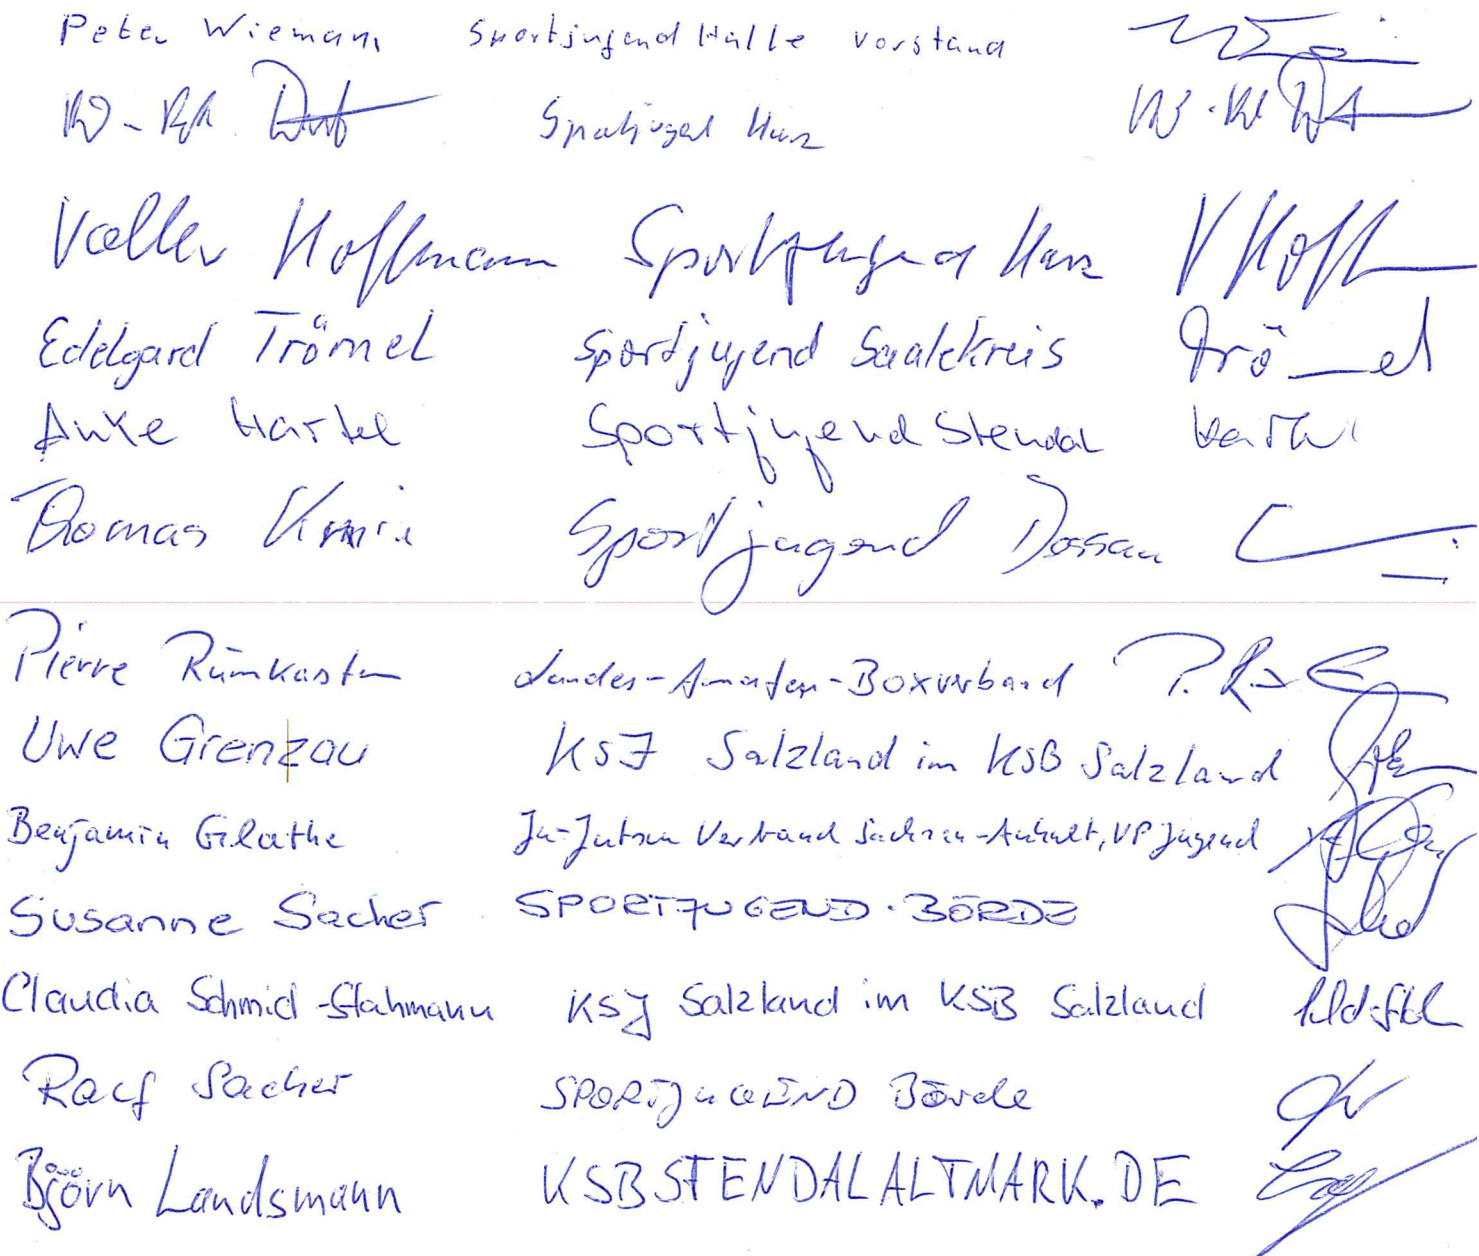 Peter Wiemann Sportjugend Halle Vorstand
Sportjugend Harz
Volker Hoffmann Sportjugend Harz V Hoff
Edelgard Trömel Sportjugend Saalekreis Trömel
Anke Härtel Sportjugend Stendal
Thomas Sportjugend Dessau
Pierre Rümkasten Landes-Amateur-Boxverband
Uwe Grenzau KSJ Salzland im KSB Salzland
Benjamin Glathe Ju-Jutsu Verband Sachsen-Anhalt, VP Jugend
Susanne Sacher SPORTJUGEND · BÖRDE
Claudia Schmid-Stahmann KSJ Salzland im KSB Salzland
Ralf Sacher SPORTJUGEND Börde
Björn Landsmann KSBSTENDALALTMARK.DE